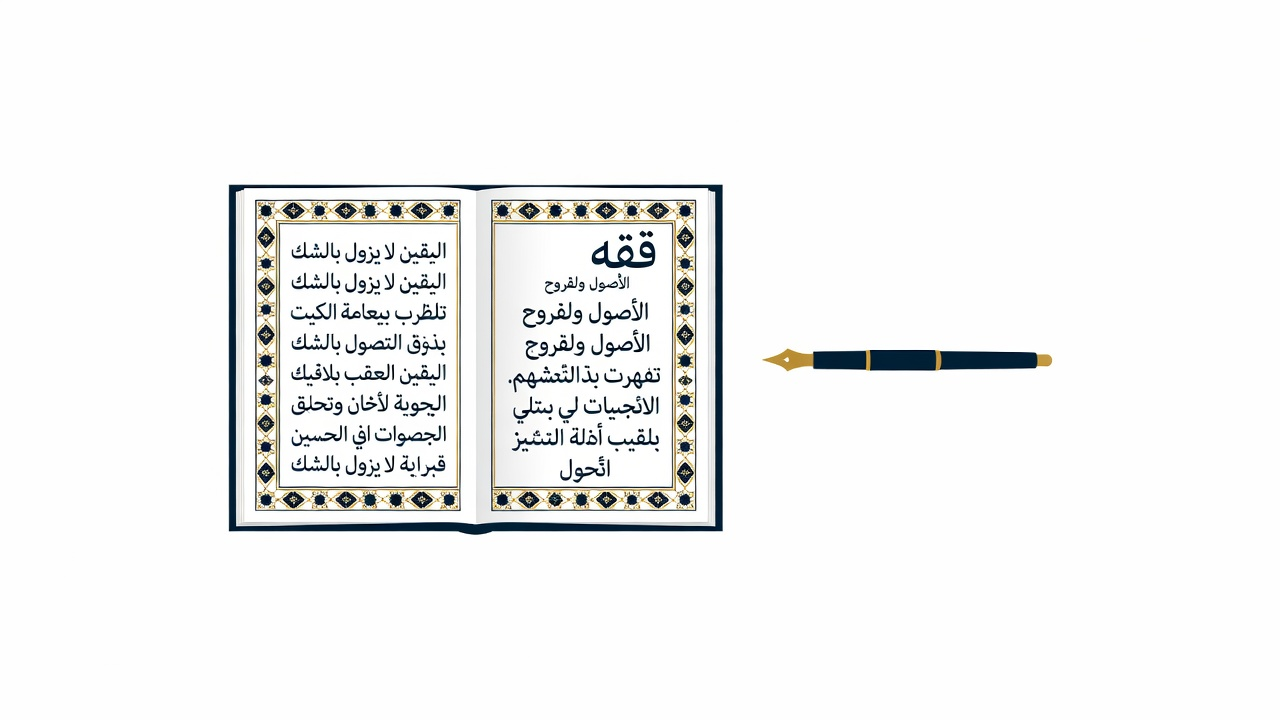 ققه
الأصول ولقروح
الأصول ولقروح
الأصول ولقروج
تفهرت بذالتّعشهم.
الائجبيات لي بىتلي
بلقيب أذلة التىثىيز
ائحول
اليقين لا يزول بالشك
اليقين لا يزول بالشك
تلظرب بيعامة الكيت
بذوٓق التصول بالشك
اليقين العقب بلاقيك
الجوية لأخان وتحلق
الجصوات افي الحسين
قبراية لا يزول بالشك